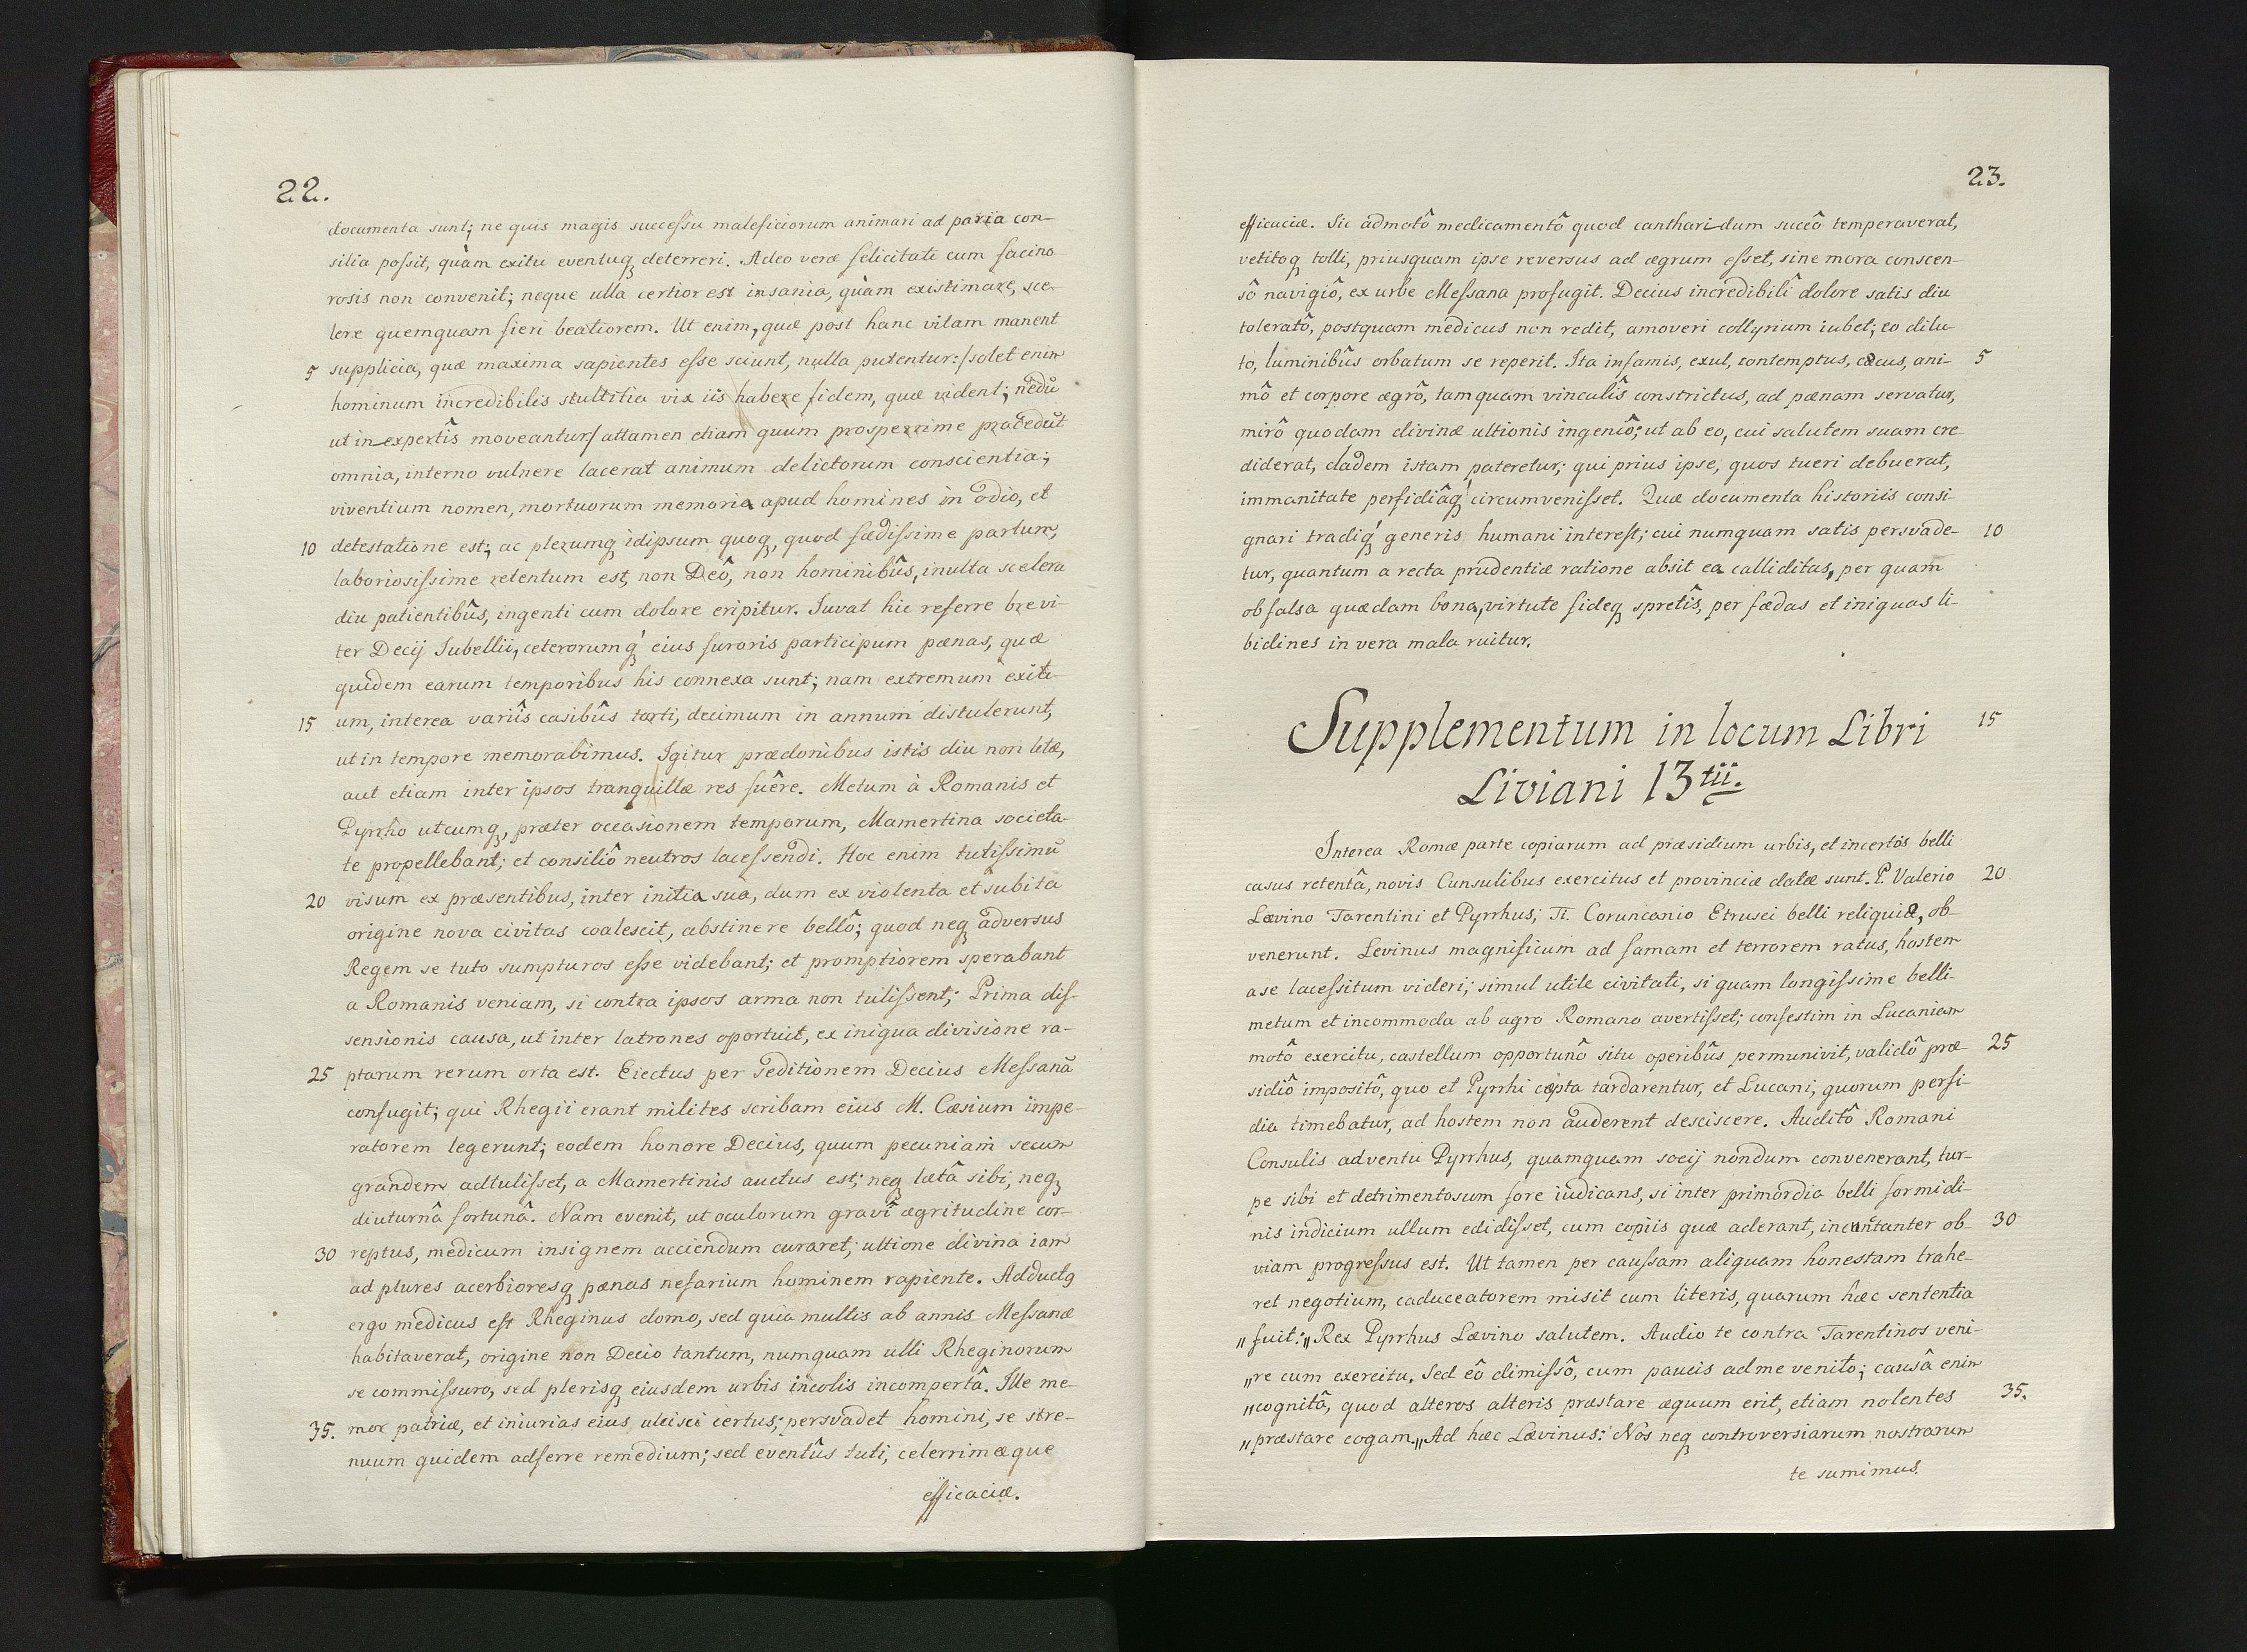 22.
documenta sunt; ne quis magis successu maleficiorum animari ad paria con-
silia possit, quàm exitu eventuq₃ deterreri. Adeo veræ felicitati cum facino-
rosis non convenit; neque ulla certior est insania, quàm existimare, sce-
lere quemquam fieri beatiorem. Ut enim, quæ post hanc vitam manent
5 supplicia, quæ maxima sapientes esse sciunt, nulla putentur: /solet enim
hominum incredibilis stultitia vix iis habere fidem, quæ vident; nedū
ut inexpertîs moveantur/ attamen etiam quum prosperrime procedūt
omnia, interno vulnere lacerat animum delictorum conscientia;
viventium nomen, mortuorum memoria apud homines in odio, et
10 detestatione est; ac plerumq₃ idipsum quoq₃, quod fædissime partum,
laboriosissime retentum est, non Deô, non hominibûs, inulta scelera
diu patientibûs, ingenti cum dolore eripitur. Iuvat hic referre brevi-
ter Decij Iubellii, ceterorumq₃́ eius furoris participum pænas, quæ
quidem earum temporibus his connexa sunt; nam extremum exiti-
15 um, interea variîs casibûs torti, decimum in annum distulerunt,
ut in tempore memorabimus. Igitur prædonibus istis diu non letæ,
aut etiam inter ipsos tranquillæ res fuêre. Metum à Romanis et
Pyrrho utcumq₃, præter occasionem temporum, Mamertina societa-
te propellebant; et consiliô neutros lacessendi. Hoc enim tutissimū
20 visum ex præsentibus, inter initia sua, dum ex violenta et subita
origine nova civitas coalescit, abstinere bellô; quod neq₃ adversus
Regem se tuto sumpturos esse videbant; et promptiorem sperabant
a Romanis veniam, si contra ipsos arma non tulissent; Prima dis-
sensionis causa, ut inter latrones oportuit, ex iniqua divisione ra-
25 ptarum rerum orta est. Eiectus per seditionem Decius Messanā
confugit; qui Rhegii erant milites scribam eius M. Cæsium impe-
ratorem legerunt; eodem honore Decius, quum pecuniam secum
grandem adtulisset, a Mamertinis auctus est; neq₃ lætâ sibi, neq₃
diuturnâ fortunâ. Nam evenit, ut oculorum gravî ægritudine cor-
30 reptus, medicum insignem acciendum curaret; ultione divina iam
ad plures acerbioresq₃ pænas nefarium hominem rapiente. Adductꝯ
ergo medicus est Rheginus domo, sed quia multis ab annis Messanæ
habitaverat, origine non Decio tantum, numquam ulli Rheginorum
se commissuro, sed plerisq₃ eiusdem urbis incolis incompertâ. Ille me-
35. mor patriæ, et iniurias eius ulcisci certus; persvadet homini, se stre-
nuum quidem adferre remedium; sed eventûs tuti, celerrimæque
efficaciæ.
23.
efficaciæ. Sic admotô medicamentô quod cantharidum succô temperaverat,
vetitoq₃ tolli, priusquam ipse reversus ad ægrum esset, sine mora conscen-
sô navigiô, ex urbe Messana profugit. Decius incredibilî dolore satis diu
toleratô, postquam medicus non redit, amoveri collyrium iubet; eo dilu-
to, luminibûs orbatum se reperit. Ita infamis, exul, contemptus, cæcus, ani- 5
mô et corpore ægrô, tamquam vinculîs constrictus, ad pænam servatur,
mirô quodam divinæ ultionis ingeniô; ut ab eo, cui salutem suam cre-
diderat, cladem istam pateretur; qui prius ipse, quos tueri debuerat,
immanitate perfidiâq₃́ circumvenisset. Quæ documenta historiis consi-
gnari tradiq₃́ generis humani interest; cui numquam satis persvade- 10
tur, quantum a recta prudentiæ ratione absit ea calliditas, per quam
ob falsa quædam bona, virtute fideq₃ spretîs, per fædas et iniquas li-
bidines in vera mala ruitur.
Supplementum in locum Libri 15
Liviani 13tii.
Interea Romæ parte copiarum ad præsidium urbis, et incertôs belli
casus retentâ, novis Cunsulibus exercitus et provinciæ datæ sunt. P. Valerio 20
Lævino Tarentini et Pyrrhus; Ti. Coruncanio Etrusci belli reliquiæ, ob-
venerunt. Levinus magnificum ad famam et terrorem ratus, hostem
a se lacessitum videri; simul utile civitati, si quam longissime belli-
metum et incommoda ab agro Romano avertisset; confestim in Lucaniam
motô exercitu, castellum opportunô situ operibûs permunivit, validô præ- 25
sidiô impositô, quo et Pyrrhi cæpta tardarentur, et Lucani, quorum perfi-
dia timebatur, ad hostem non auderent desciscere. Auditô Romani
Consulis adventu Pyrrhus, quamquam socij nondum convenerant, tur-
pe sibi et detrimentosum fore iudicans, si inter primordia belli formidi-
nis indicium ullum edidisset, cum copiis quæ aderant, incuntanter ob- 30
viam progressus est. Ut tamen per caussam aliquam honestam trahe-
ret negotium, caduceatorem misit cum literis, quarum hæc sententia
„ fuit: „ Rex Pyrrhus Lævino salutem. Audio te contra Tarentinos veni-
„ re cum exercitu. Sed eô dimissô, cum paucis ad me venito; causâ enim
„ cognitâ, quod alteros alteris præstare æquum erit, etiam nolentes 35.
„ præstare cogam. „ Ad hæc Lævinus: Nos neq₃ controversiarum nostrarum
te sumimus.